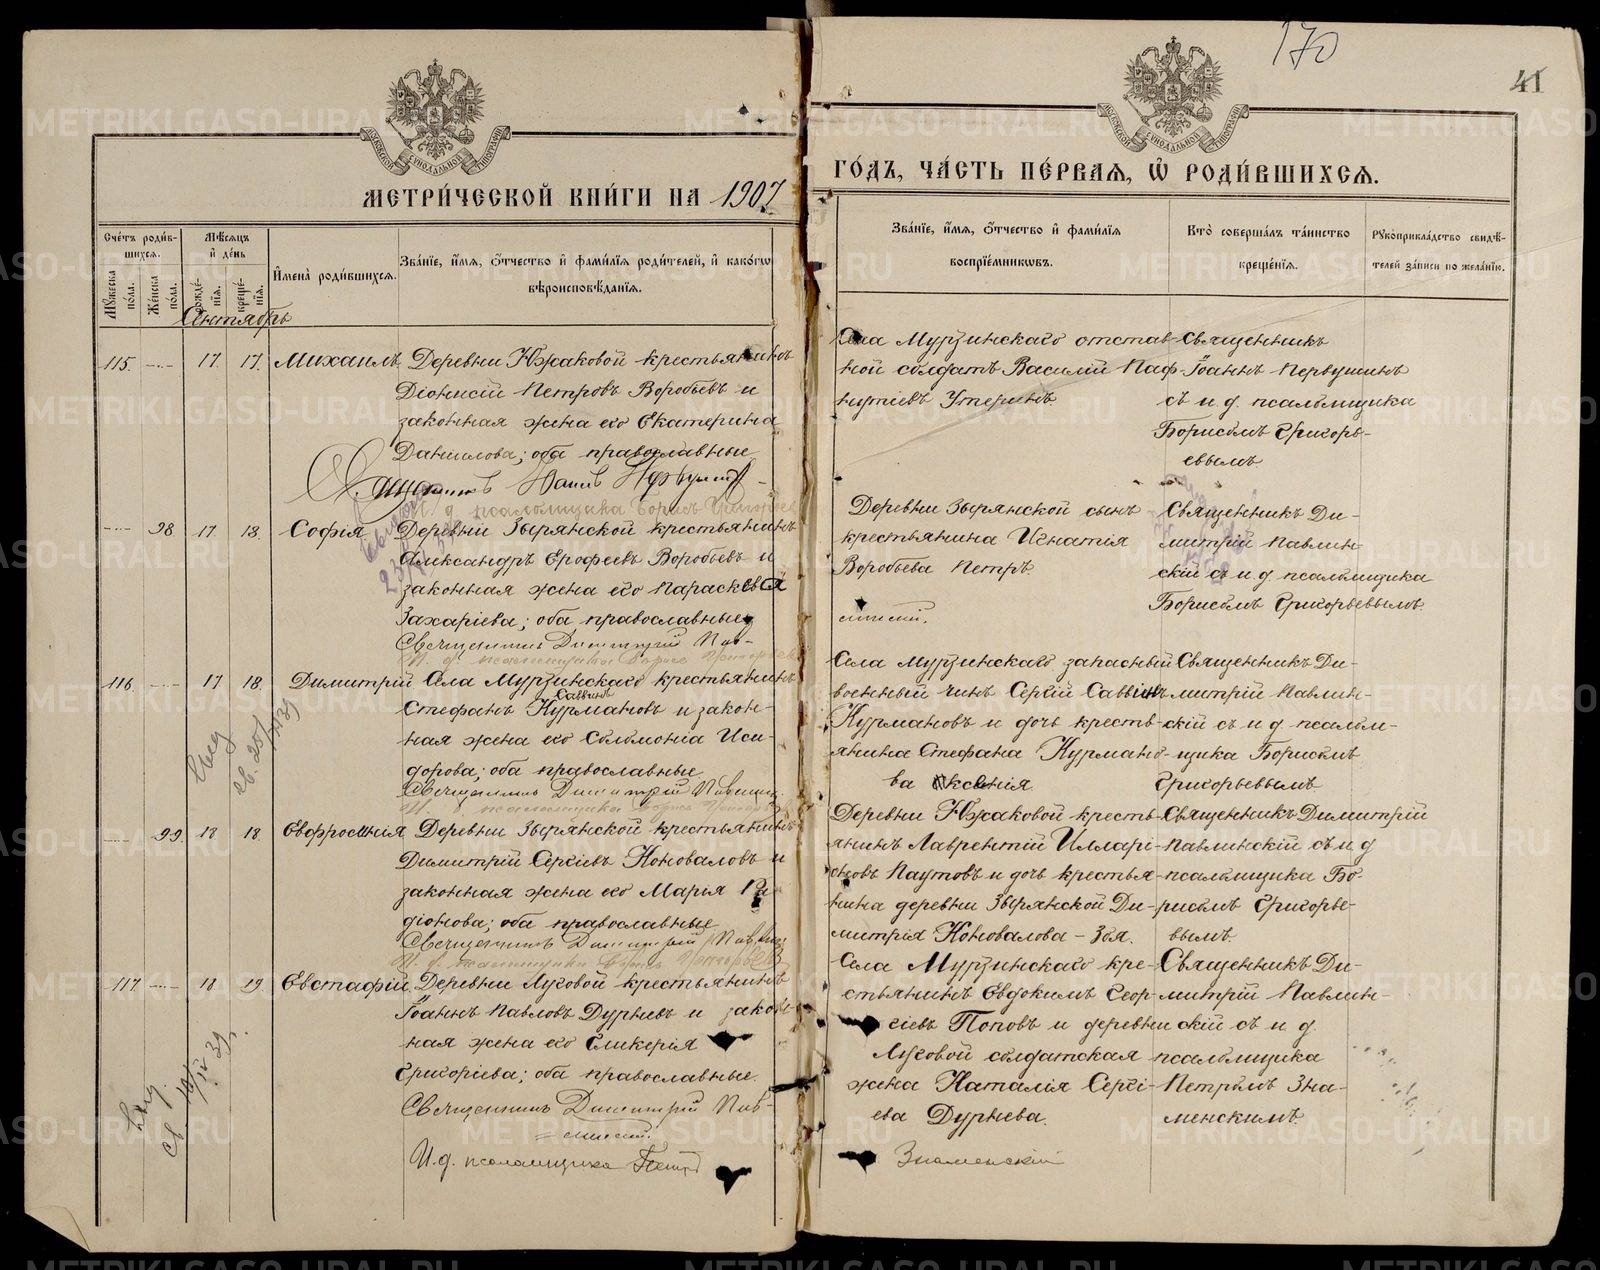 170
41
МЕТРИ́ЧЕСКОЙ КНИ́ГИ НА 1907
ГО́ДЪ, ЧА́СТЬ ПЕ́РВАЯ, Ѽ РОДИ́ВШИХСЯ.
Сче́тъ роди́вшихся.
Мѣ́сяцъ и де́нь
Имена̀ роди́вшихся.
Зва́нїе, и́мя, о́тчество и фами́лїя роди́телей, и како́гѡ вѣроисповѣ́данїя.
Зва́нїе, и́мя, о́тчество и фами́лїя воспрїе́мниковъ.
Кто̀ соверша́лъ та́инство креще́нїя.
Рꙋкоприкла́дство свидѣ́телей за́писи по жела́нїю.
Мꙋ́жеска по́ла.
Же́нска по́ла.
рожде́нїя.
креще́нїя.
Сентябрь
115. — 17. 17. Михаилъ.
Деревни Южаковой крестьянинъ
Діонисій Петровъ Воробьевъ и
законная жена его Екатерина
Данилова; оба православные
Села Мурзинскаго отстав-
ной солдатъ Василій Паф-
нутіевъ Утеринъ.
Священникъ
Іоаннъ Первушинъ
съ и. д. псаломщика
Борисомъ Григорь-
евымъ
Священникъ
И. д. псаломщика Борисъ Григорьев
— 98 17. 18. Софія.
Деревни Зырянской крестьянинъ
Александръ Ерофеевъ Воробьевъ и
законная жена его Параскева
Захаріева; оба православные
Священникъ Димитрій Пав-
линскій.
И. д. псаломщика Борисъ Григорьев
Деревни Зырянской сынъ
крестьянина Игнатія
Воробьева Петръ.
Священникъ Ди-
митрій Павлин-
скій съ и. д. псаломщика
Борисомъ Григорьевымъ.
116. — 17 18. Димитрій
Села Мурзинскаго крестьянинъ
Стефанъ Саввинъ Курмановъ и закон-
ная жена его Соломонія Иси-
дорова; оба православные
Священникъ Димитрій Павлин
И. д. псаломщика Борисъ Григорьев
Села Мурзинскаго запасный
военный чинъ Сергій Саввинъ
Курмановъ и дочь кресть-
янина Стефана Курмано-
ва Ксенія.
Священникъ Ди-
митрій Павлин-
скій съ и. д. псалом-
щика Борисомъ
Григорьевымъ
— 99. 18 18. Евфросинія
Деревни Зырянской крестьянинъ
Димитрій Сергіевъ Коновалов и
законная жена его Марія Ро-
діонова; оба православные
Священникъ Димитрій Павлин
И. д. псаломщика Борисъ Григорьевъ
Деревни Южаковой кресть-
янинъ Лаврентій Илларі-
оновъ Паутовъ и дочь крестья-
нина деревни Зырянской Ди-
митрія Коновалова – Зоя.
Священникъ Димитрій
Павлинскій съ и. д
псаломщика Бо-
рисомъ Григорье-
вымъ.
117 — 18 19. Евстафій.
Деревни Луговой крестьянинъ
Іоаннъ Павловъ Дурневъ и закон-
ная жена его Гликерія
Григоріева; оба православные.
Священникъ Димитрій Пав-
линскій.
И. д. псаломщика Петръ
Знаменскій
Села Мурзинскаго кре-
стьянинъ Евдокимъ Геор-
гіевъ Поповъ и деревни
Луговой солдатская
жена Наталія Сергі-
ева Дурнева.
Священникъ Ди-
митрій Павлин-
скій съ и. д.
псаломщика
Петромъ Зна-
менскимъ.
METRIKI.GASO-URAL.RU